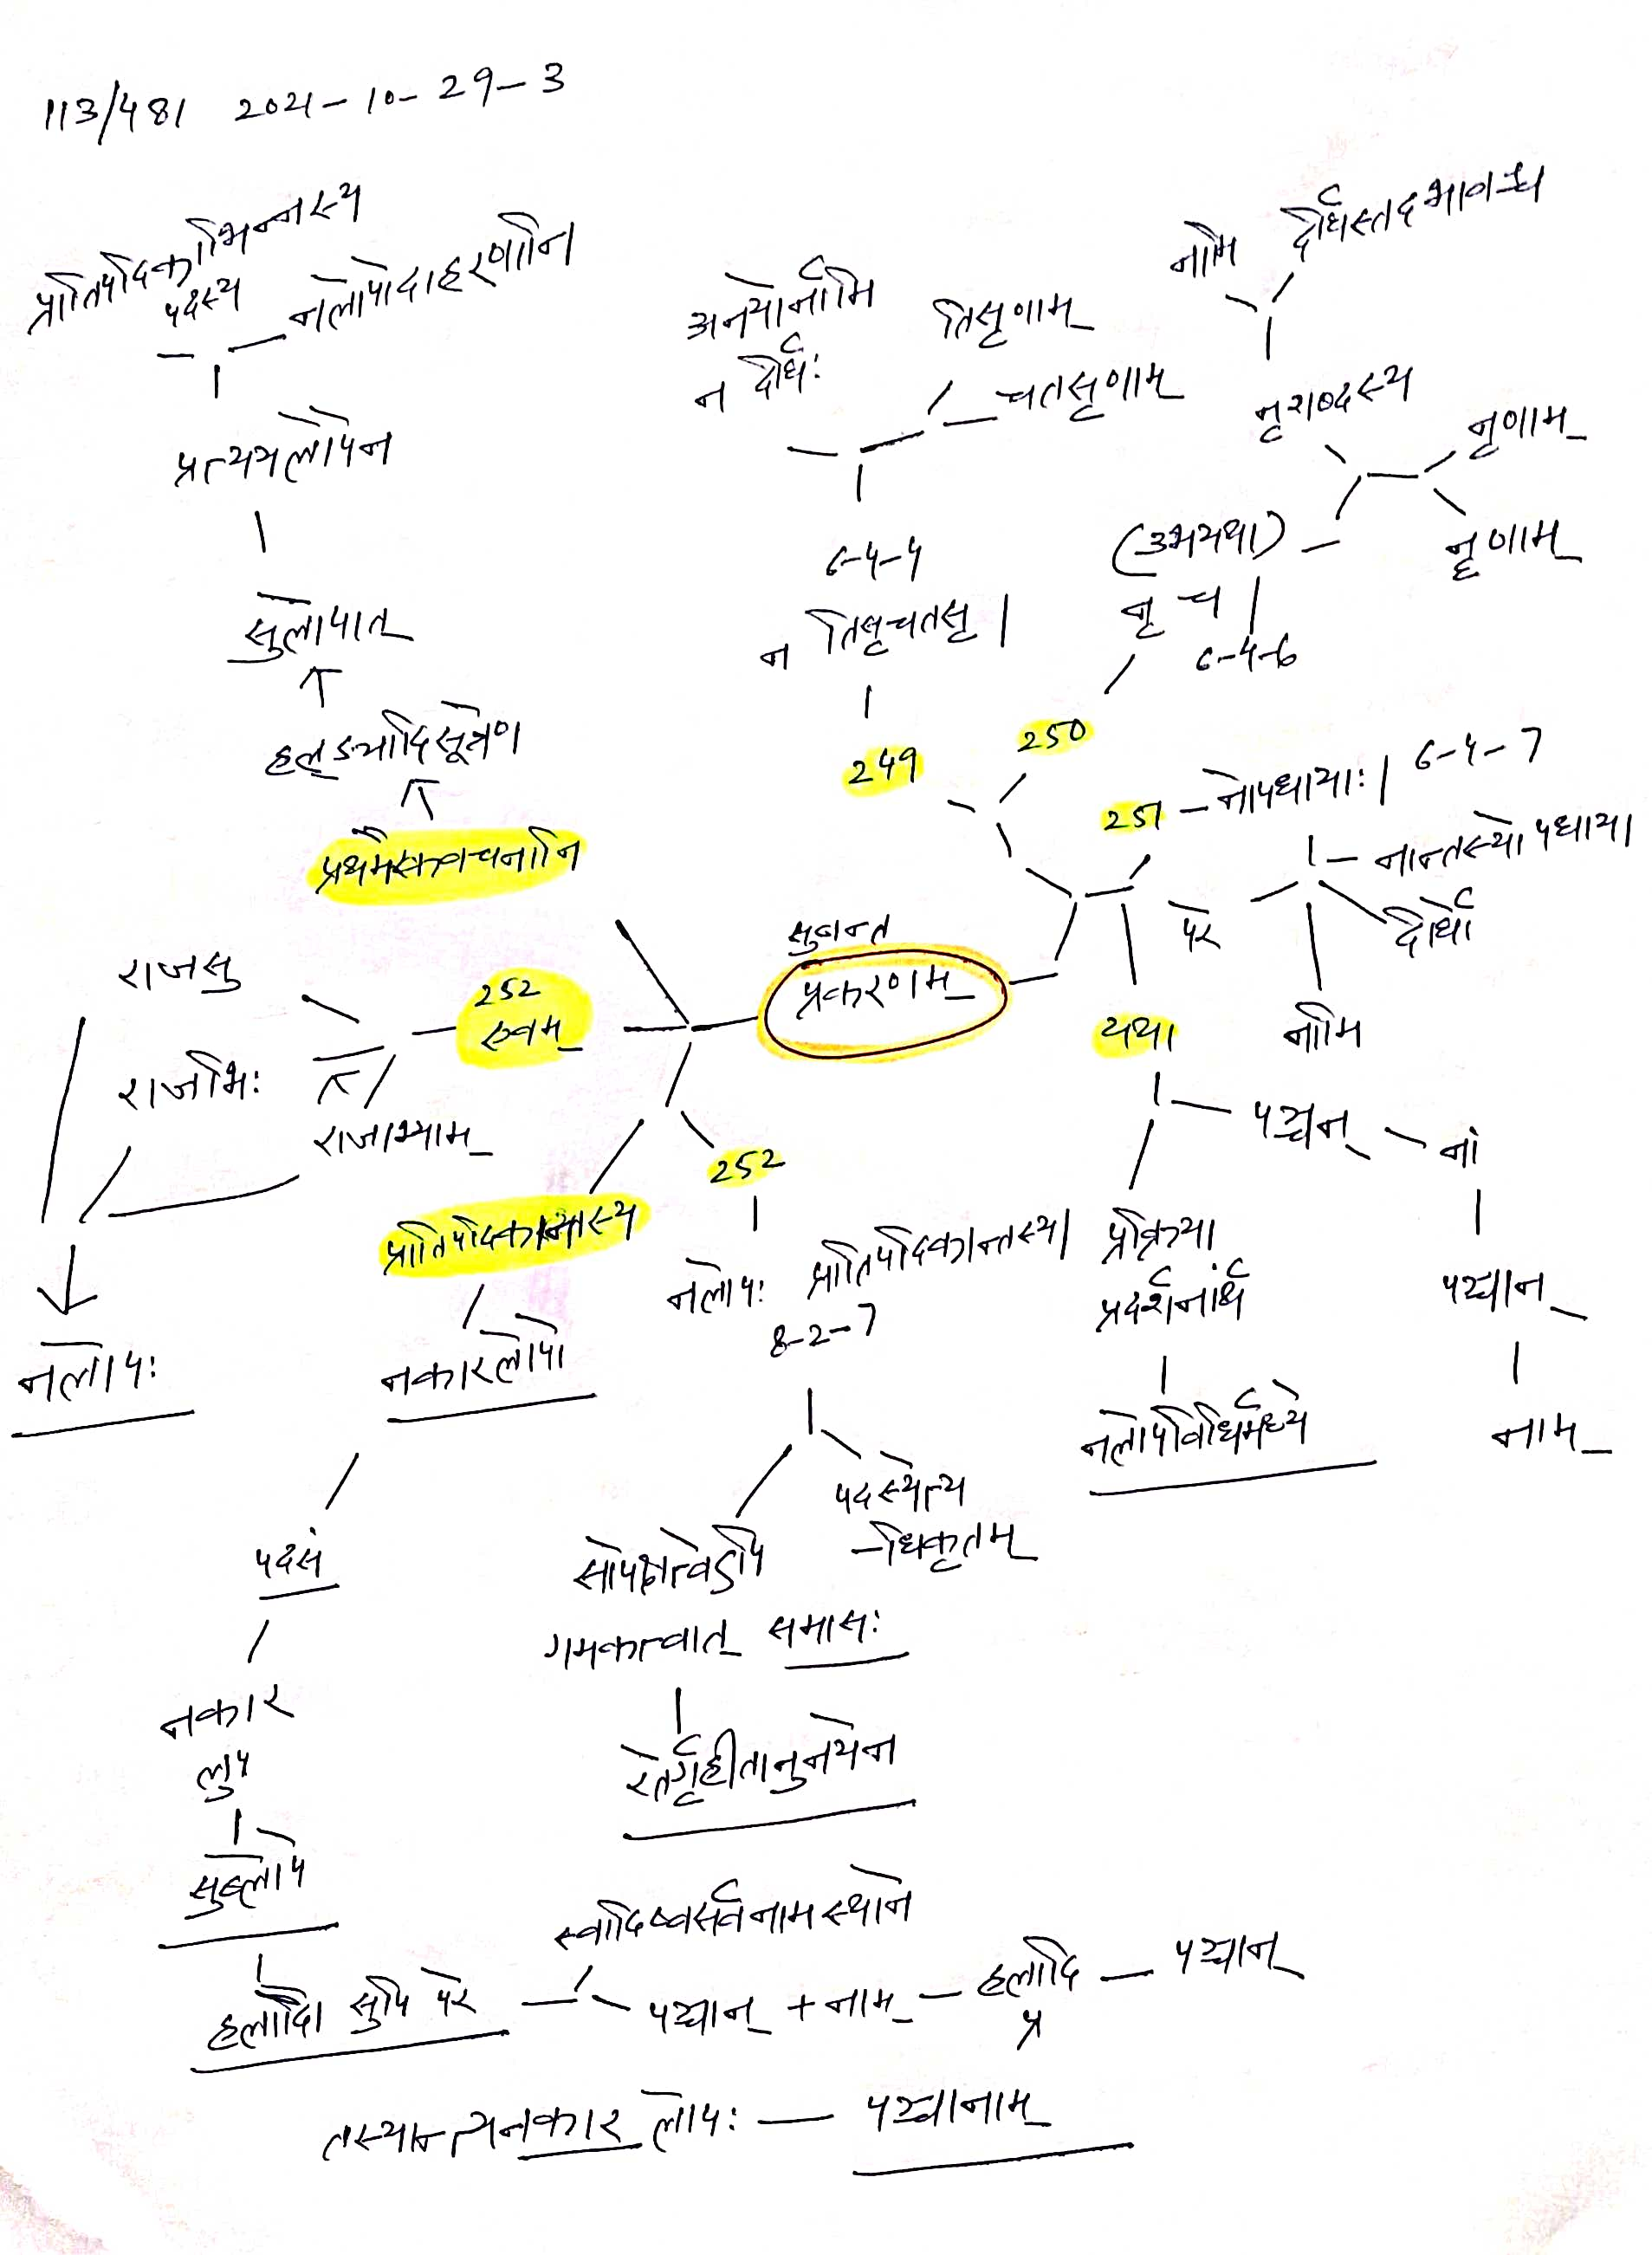 113/481 2021-10-29-3
प्रातिपदिकाभिन्नस्य
पदस्य
नलोपोदाहरणानि
प्रत्ययलोपेन
सुलोपात्
हल्ङ्यादिसूत्रेण
प्रथमैकवचनानि
अनयोर्नामि
न दीर्घः
तिसृणाम्
चतसृणाम्
6-4-4
न तिसृचतसृ।
249
नामि
नृशब्दस्य
नृणाम्
नॄणाम्
(उभयथा)
नृ च।
6-4-6
250
251 - नोपधायाः। 6-4-7
नान्तस्योपधाया
दीर्घो
परे
नामि
सुबन्त
प्रकरणम्
यथा
पञ्चन् - नां
पञ्चान्
नाम्
प्रक्रिया
प्रदर्शनार्थं
नलोपविधिर्मध्ये
252
एवम्
राजसु
राजभिः
राजाभ्याम्
नलोपः
252
नलोपः प्रातिपदिकान्तस्य।
8-2-7
पदस्येत्य
-धिकृतम्
सापेक्षत्वेऽपि
गमकत्वात् समासः
रतेर्गृहीतानुनयेन
प्रातिपदिकान्तस्य
नकारलोपो
पदसं
नकार
लुप्
सुब्लोपे
हलादौ सुपि परे
स्वादिष्वसर्वनामस्थाने
पञ्चान् + नाम् - हलादि - पञ्चान्
प्र
तस्यान्त्यनकार लोपः - पञ्चानाम्